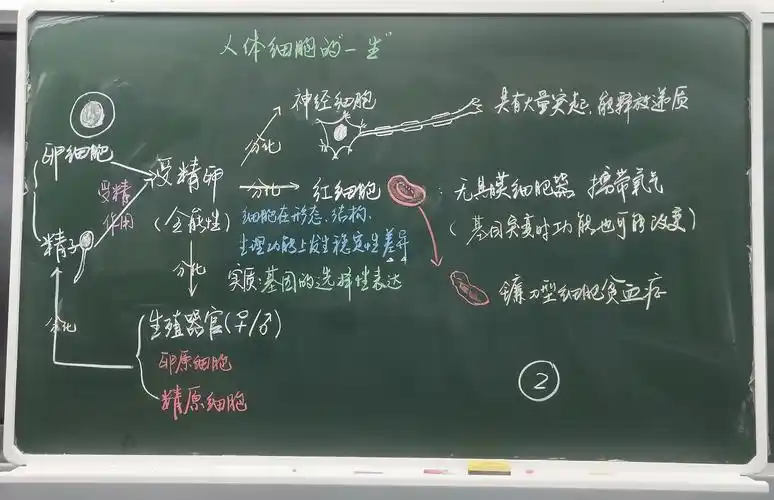 人体细胞的"一生"
神经细胞
具有大量突起,能释放递质
卵细胞
分化
受精卵
受精
作用
分化
红细胞
:无具膜细胞器 携带氧气
(全能性)
细胞在形态、结构、
(基因突变时功能也可能改变)
精子
生理功能上发生稳定性差异
分化
实质:基因的选择性表达
镰刀型细胞贫血症
分化
生殖器官(♀/♂)
卵原细胞
精原细胞
2